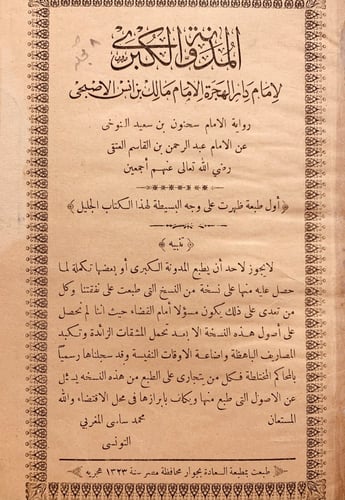 المدونة الكبرى
لإمام دار الهجرة الإمام مالك بن أنس الأصبحي
رواية الامام سحنون بن سعيد التنوخى
عن الامام عبد الرحمن بن القاسم العتقى
رضي الله تعالى عنهم أجمعين
﴿ أول طبعة ظهرت على وجه البسيطة لهذا الكتاب الجليل ﴾
﴿ تنبيه ﴾
لايجوز لاحد أن يطبع المدونة الكبرى أو بعضها تكملة لما
حصل عليه منها على نسخة من النسخ التى طبعت على نفقتنا وكل
من تعدى على ذلك يكون مسؤلا أمام القضاء حيث اننا لم نحصل
على أصول هذه النسخة الا بعد تحمل المشقات الزائدة وتكبد
المصاريف الباهظة واضاعة الاوقات النفيسة وقد سجلناها رسميا
بالمحاكم المختلطة فكل من يتجارى على الطبع من هذه النسخة يسئل
عن الاصول التى طبع منها ويكلف بابرازها فى محل الاقتضاء والله
المستعان
محمد ساسى المغربى
التونسى
﴿ طبعت بمطبعة السعادة بجوار محافظة مصر سنة ١٣٢٣ هجريه ﴾